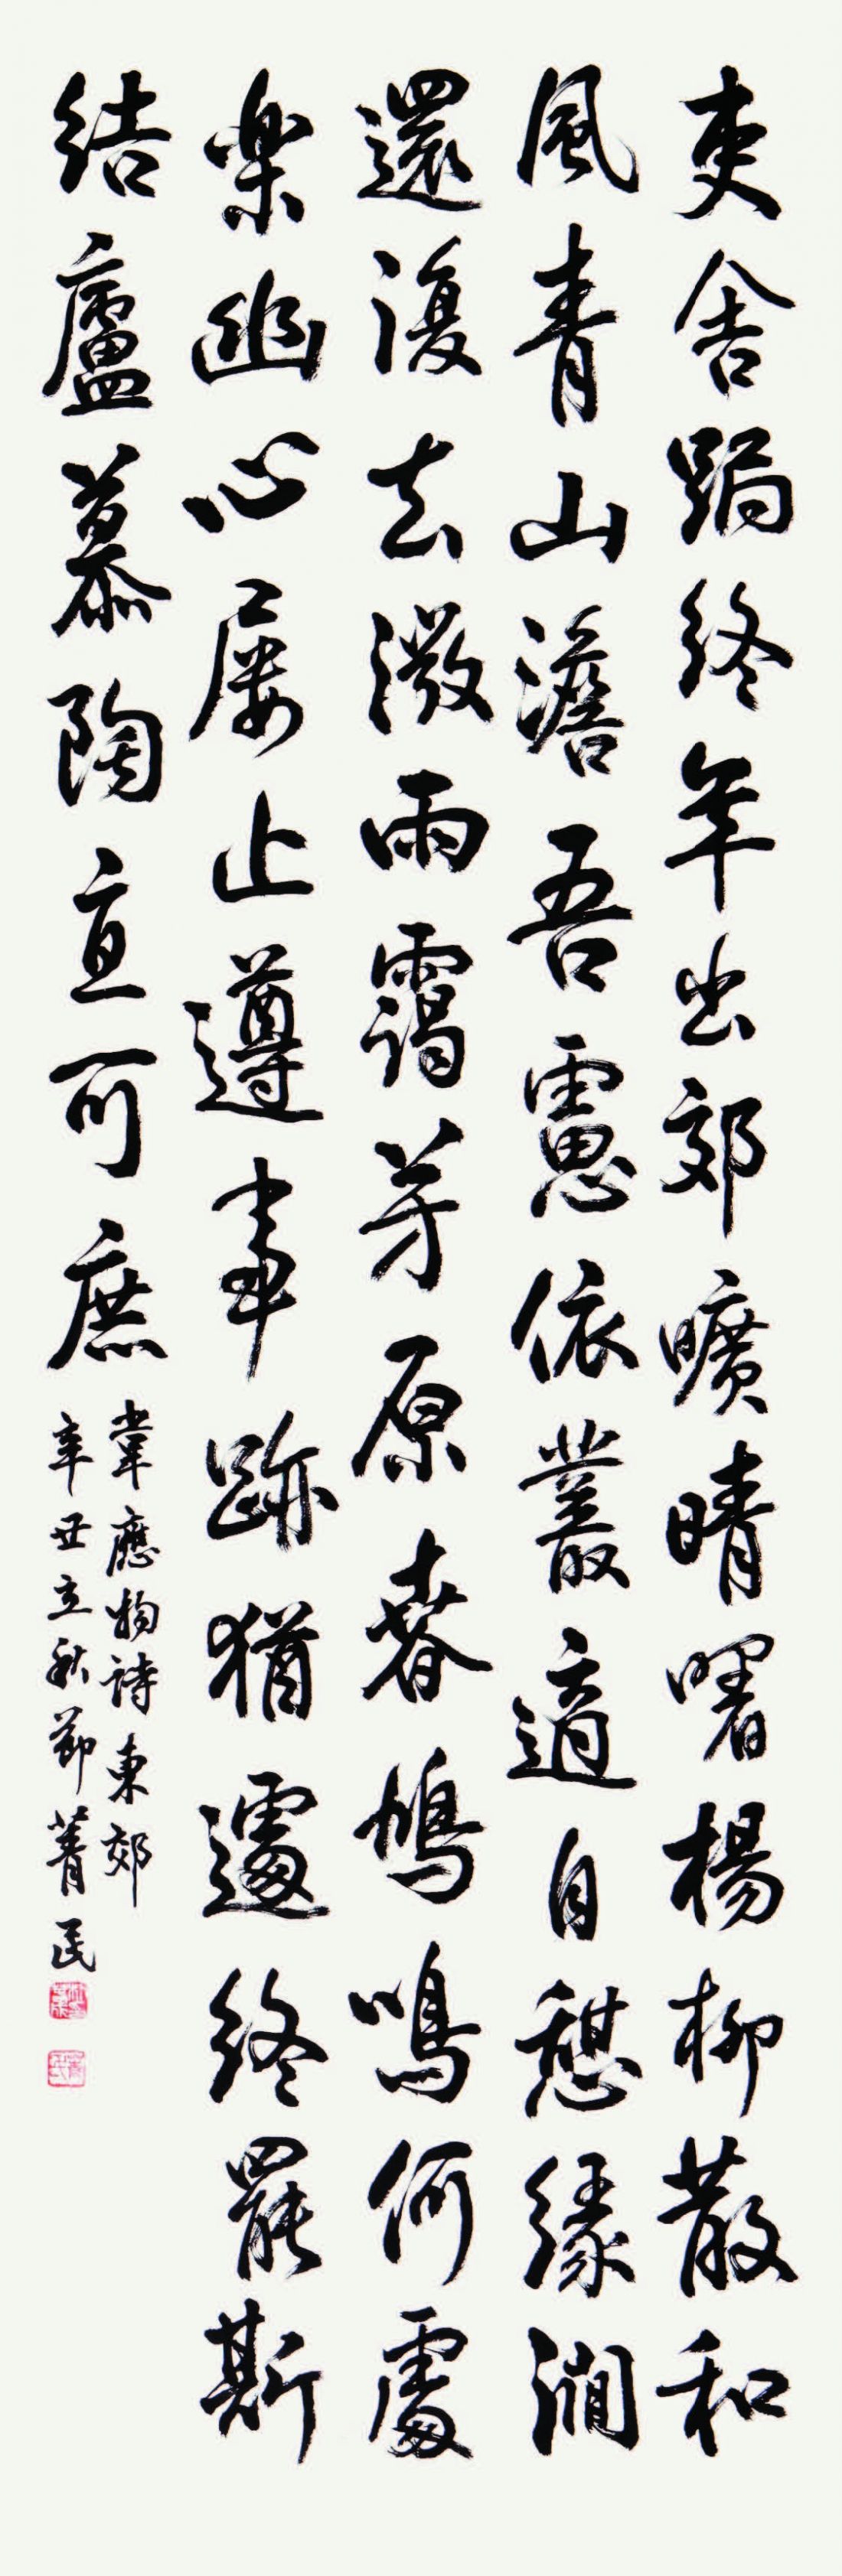 吏舍跼終年出郊曠晴曙楊柳散和
風青山澹吾慮依叢適自憩緣澗
還復去微雨靄芳原春鳩鳴何處
楽幽心屢止遵事跡猶遽終罷斯
結廬慕陶直可庶
韋應物詩東郊
辛丑立秋節菁民